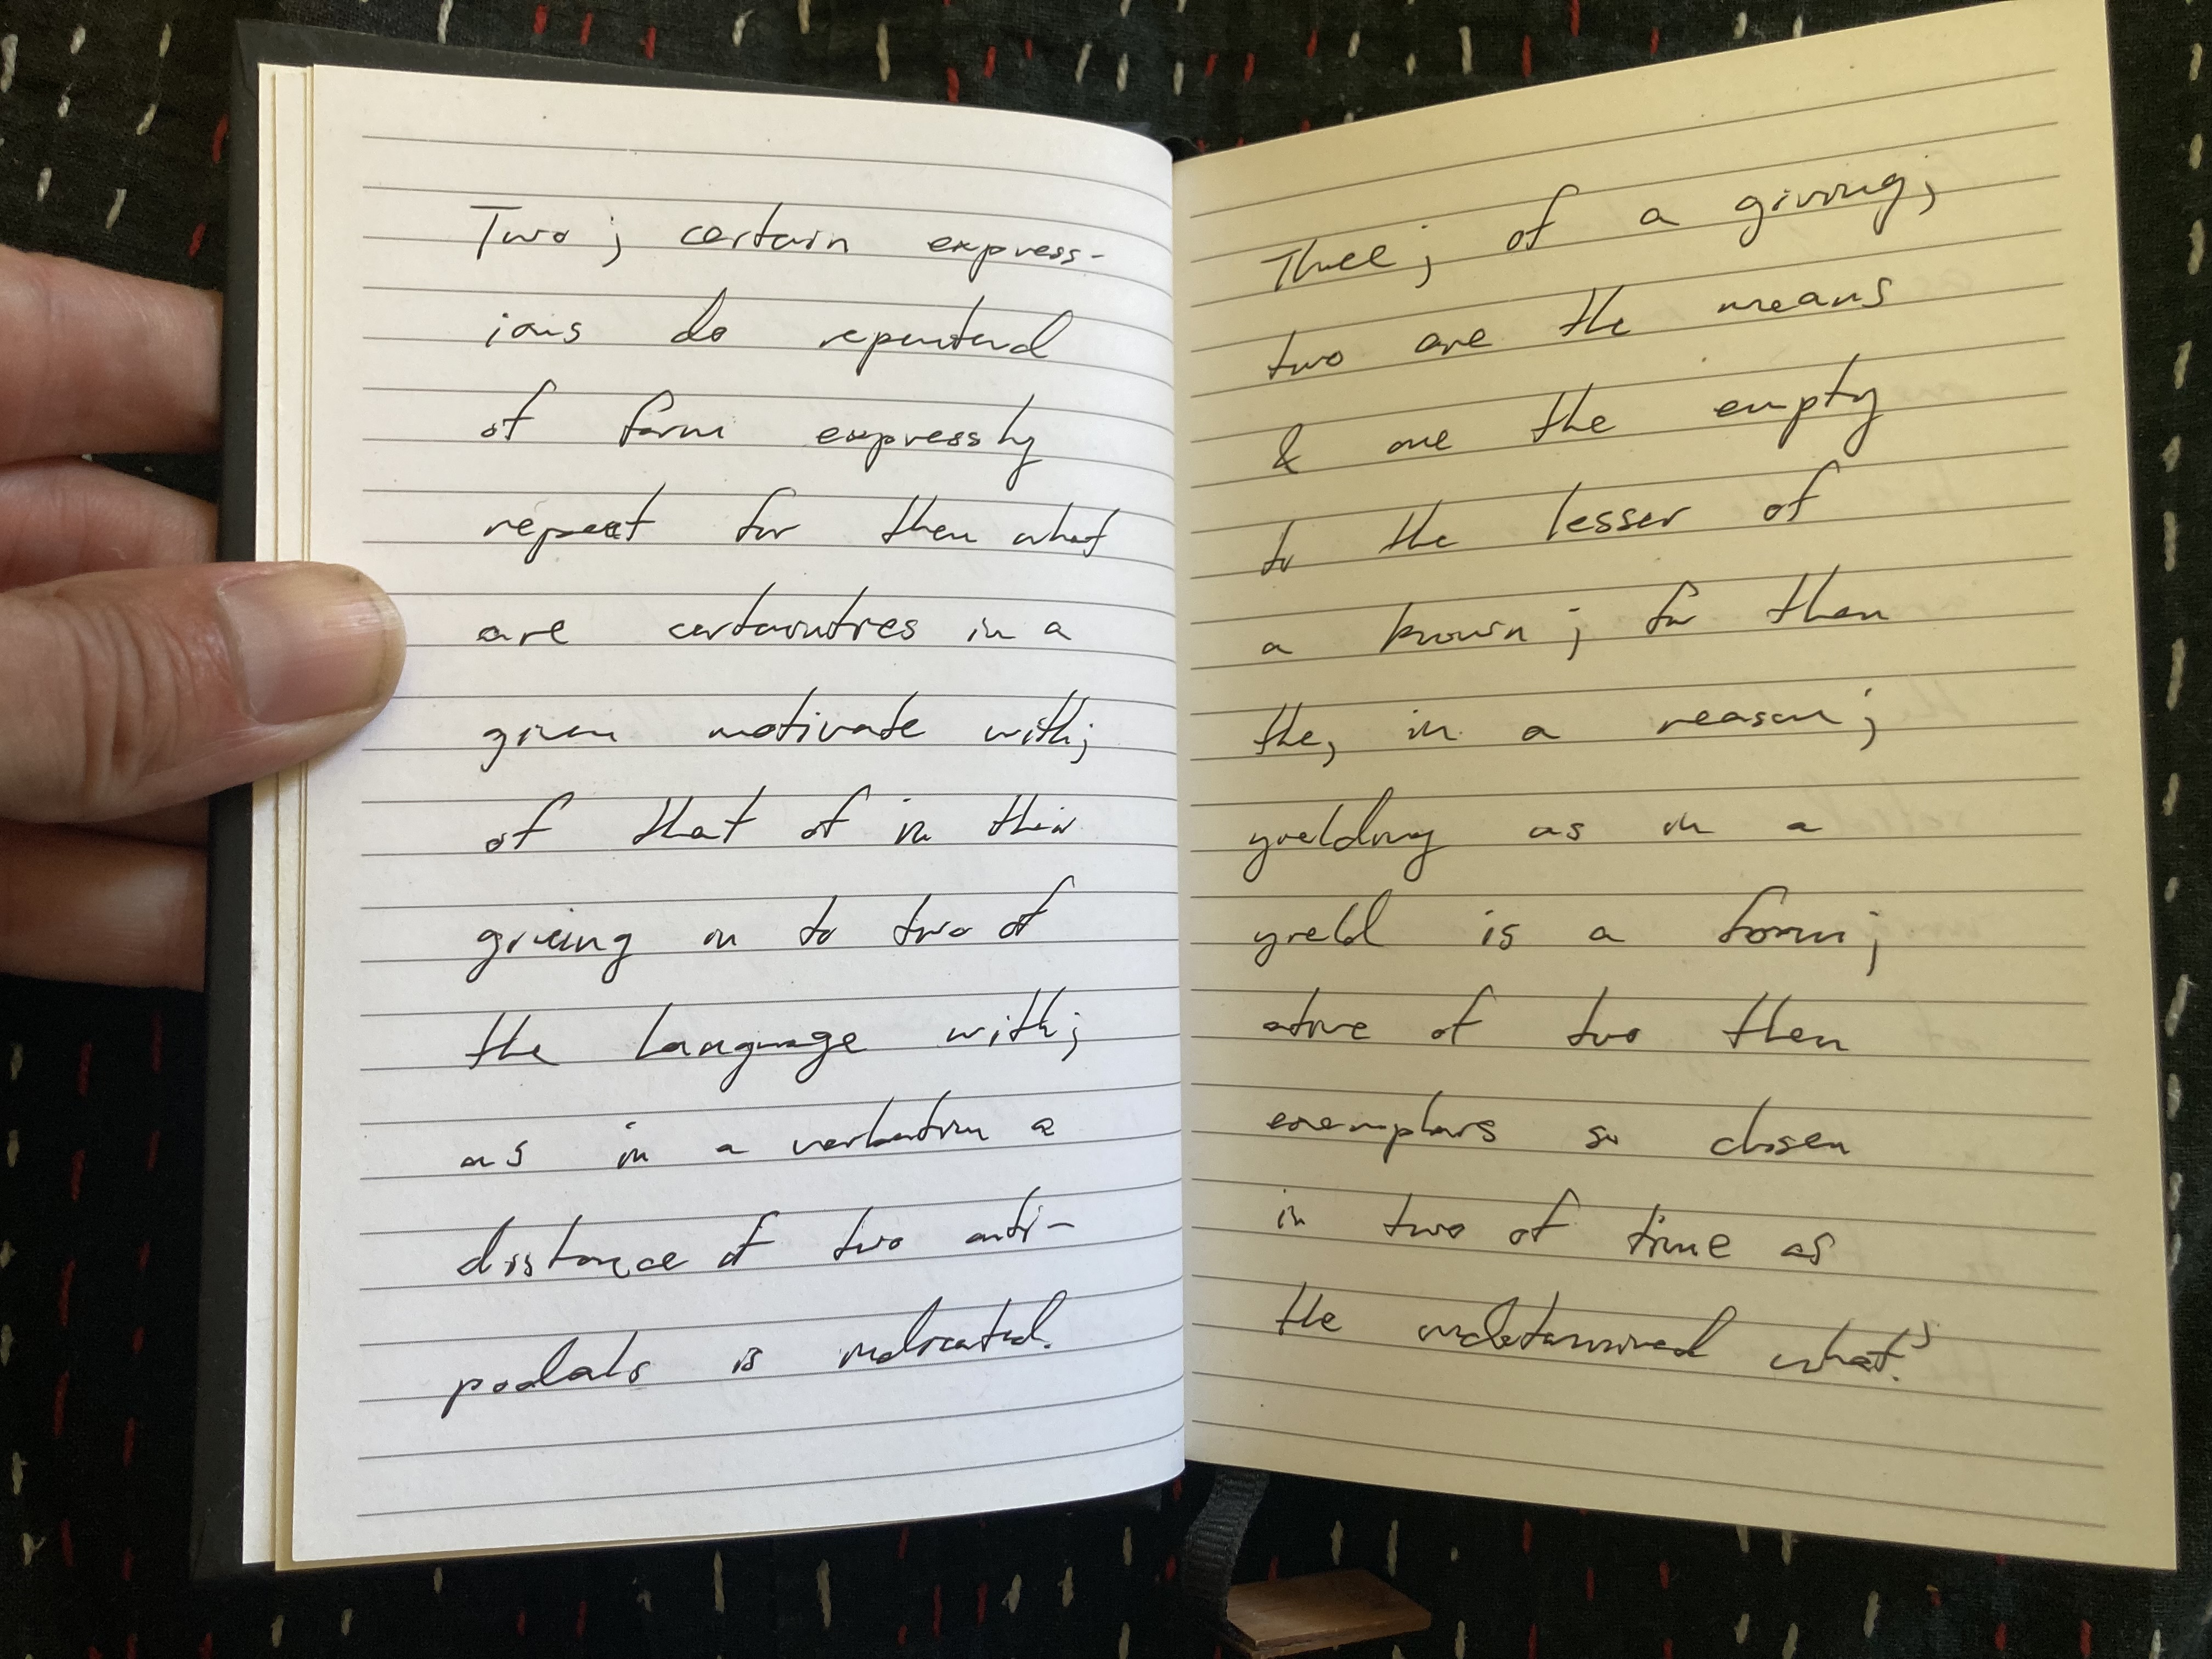 Two; certain express-
ions do repentend
of form expressly
repeat for then what
are certainties in a
given motivate with;
of that of in their
giving on to two of
the language with;
as in a verbatim a
distance of two anti-
podals is indicated.
Three; of a giving,
two are the means
& one the empty
to the lesser of
a known; for then
the, in a reason;
yielding as in a
yield is a form;
of two then
exemplars so chosen
in two of time as
the undetermined what?